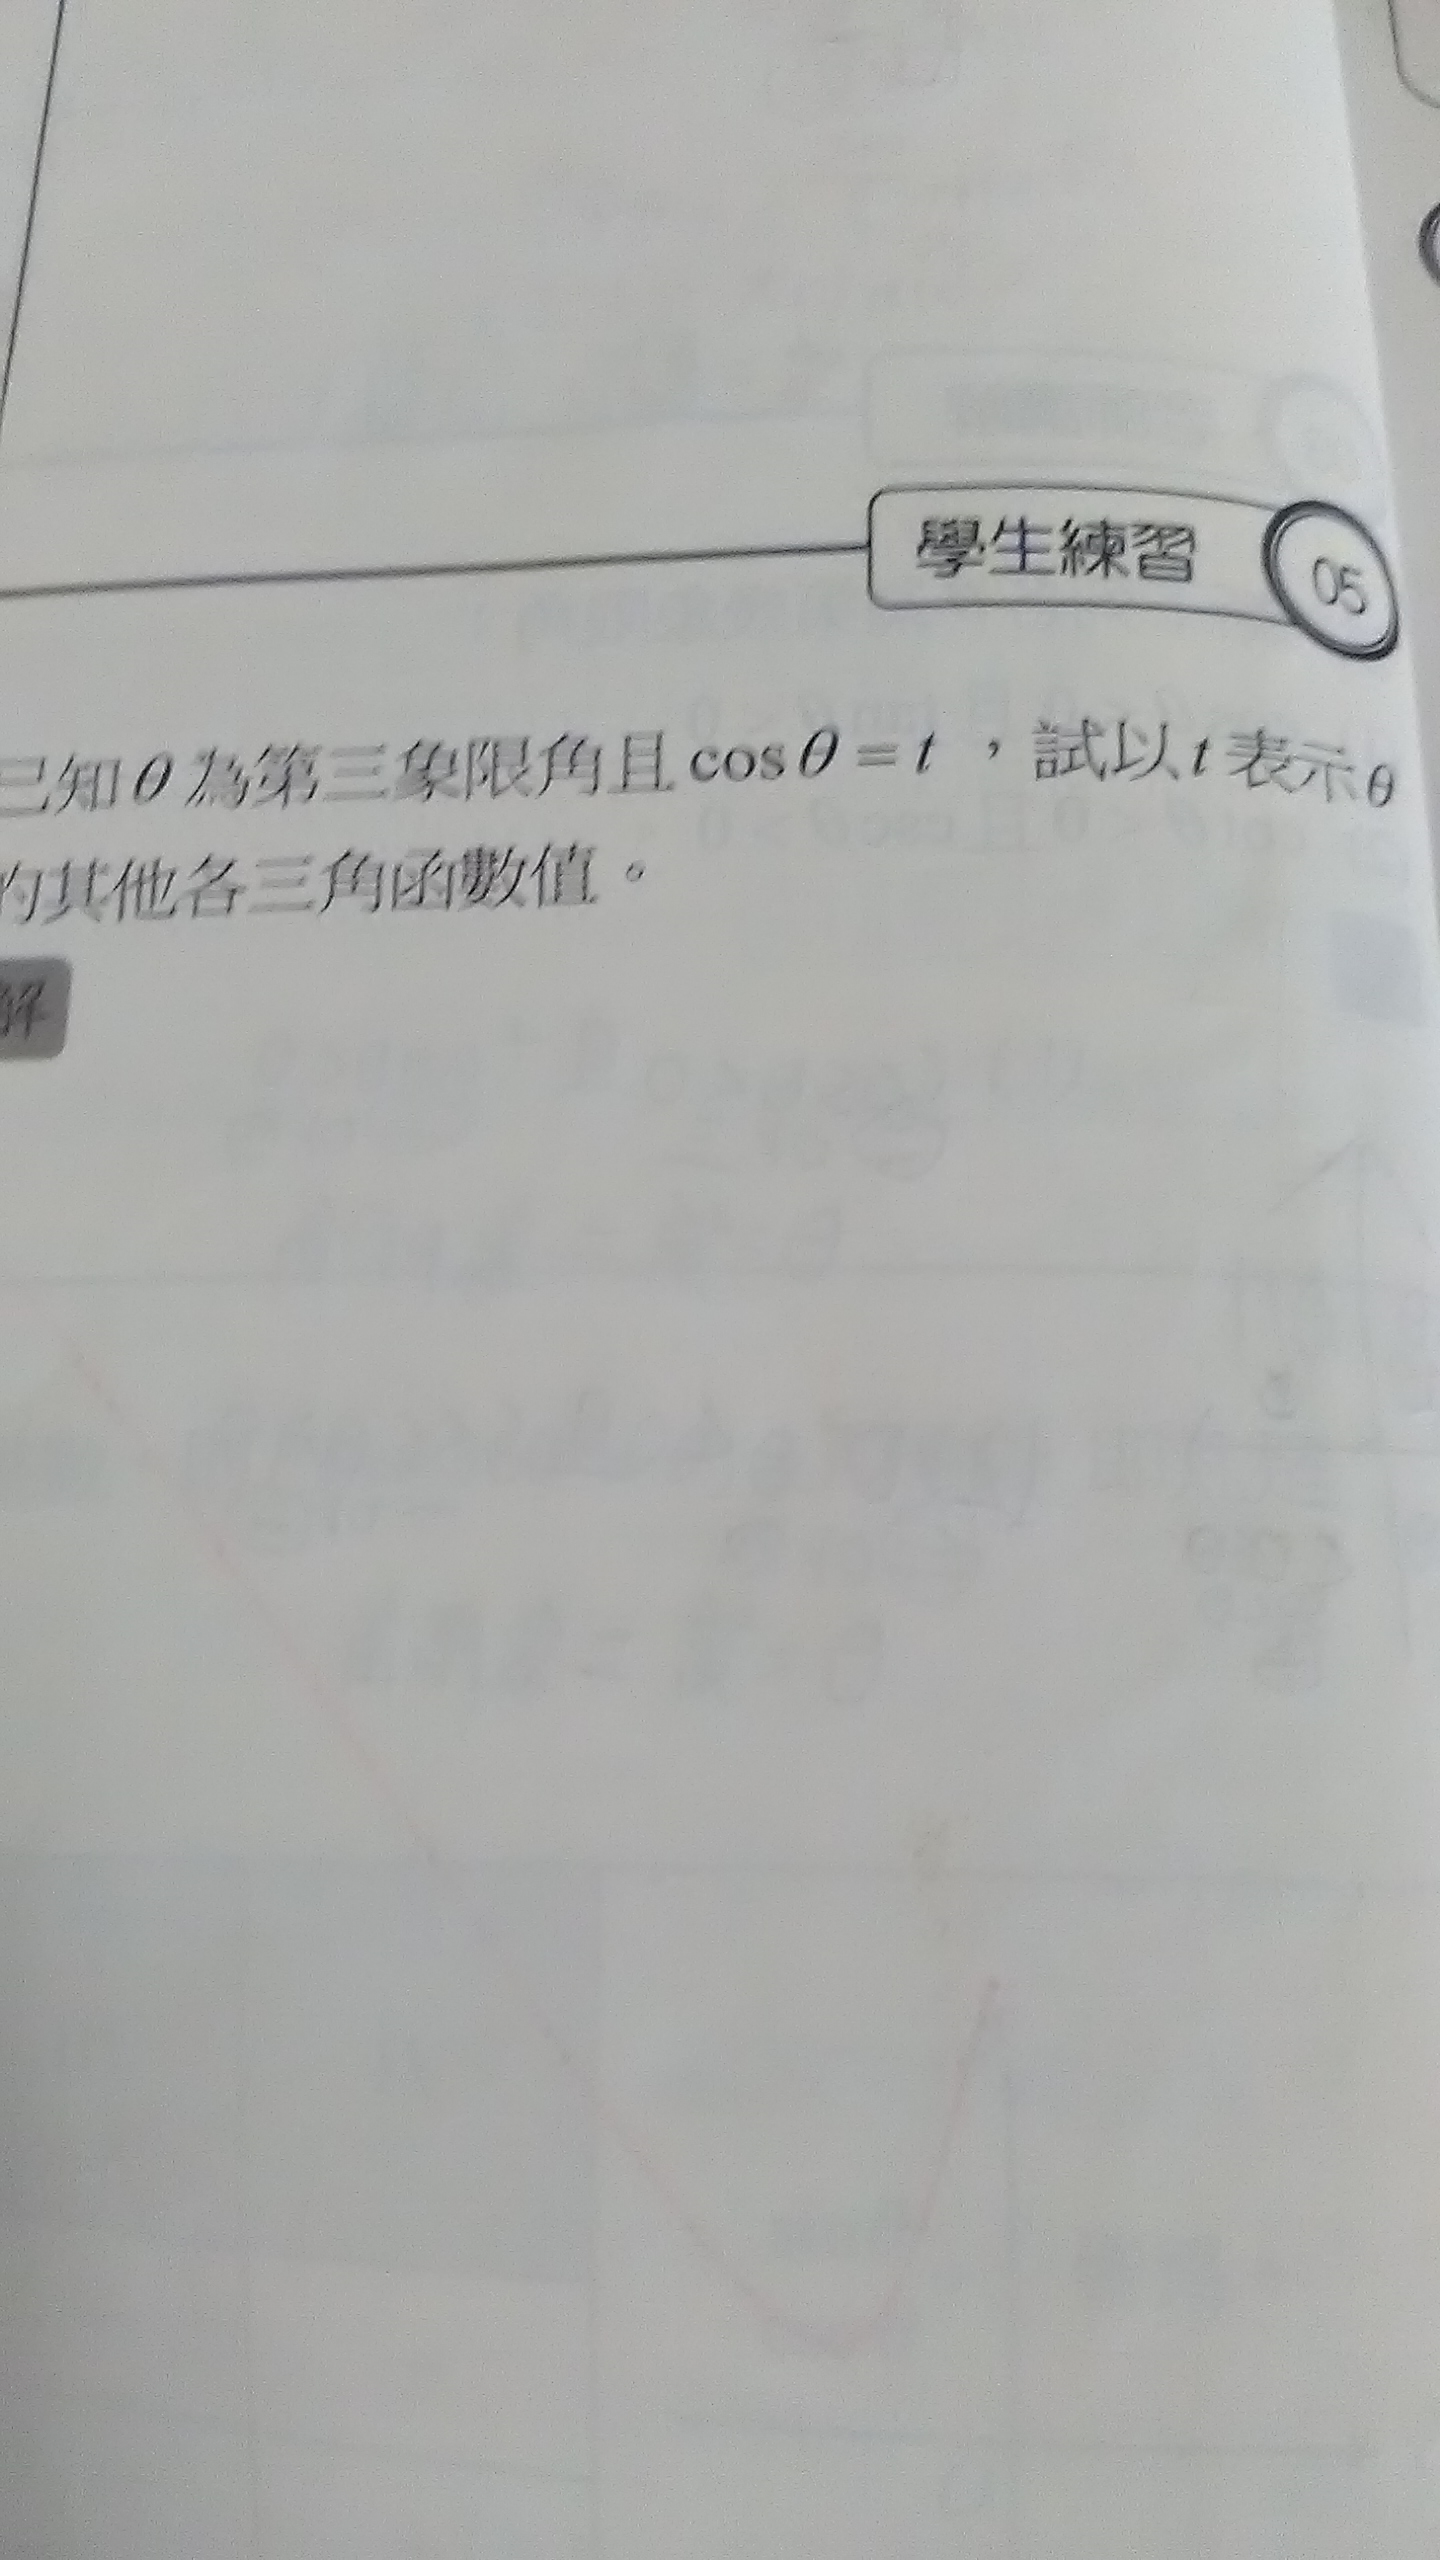 學生練習 05
已知θ為第三象限角且cosθ=t，試以t表示θ
的其他各三角函數值。
解